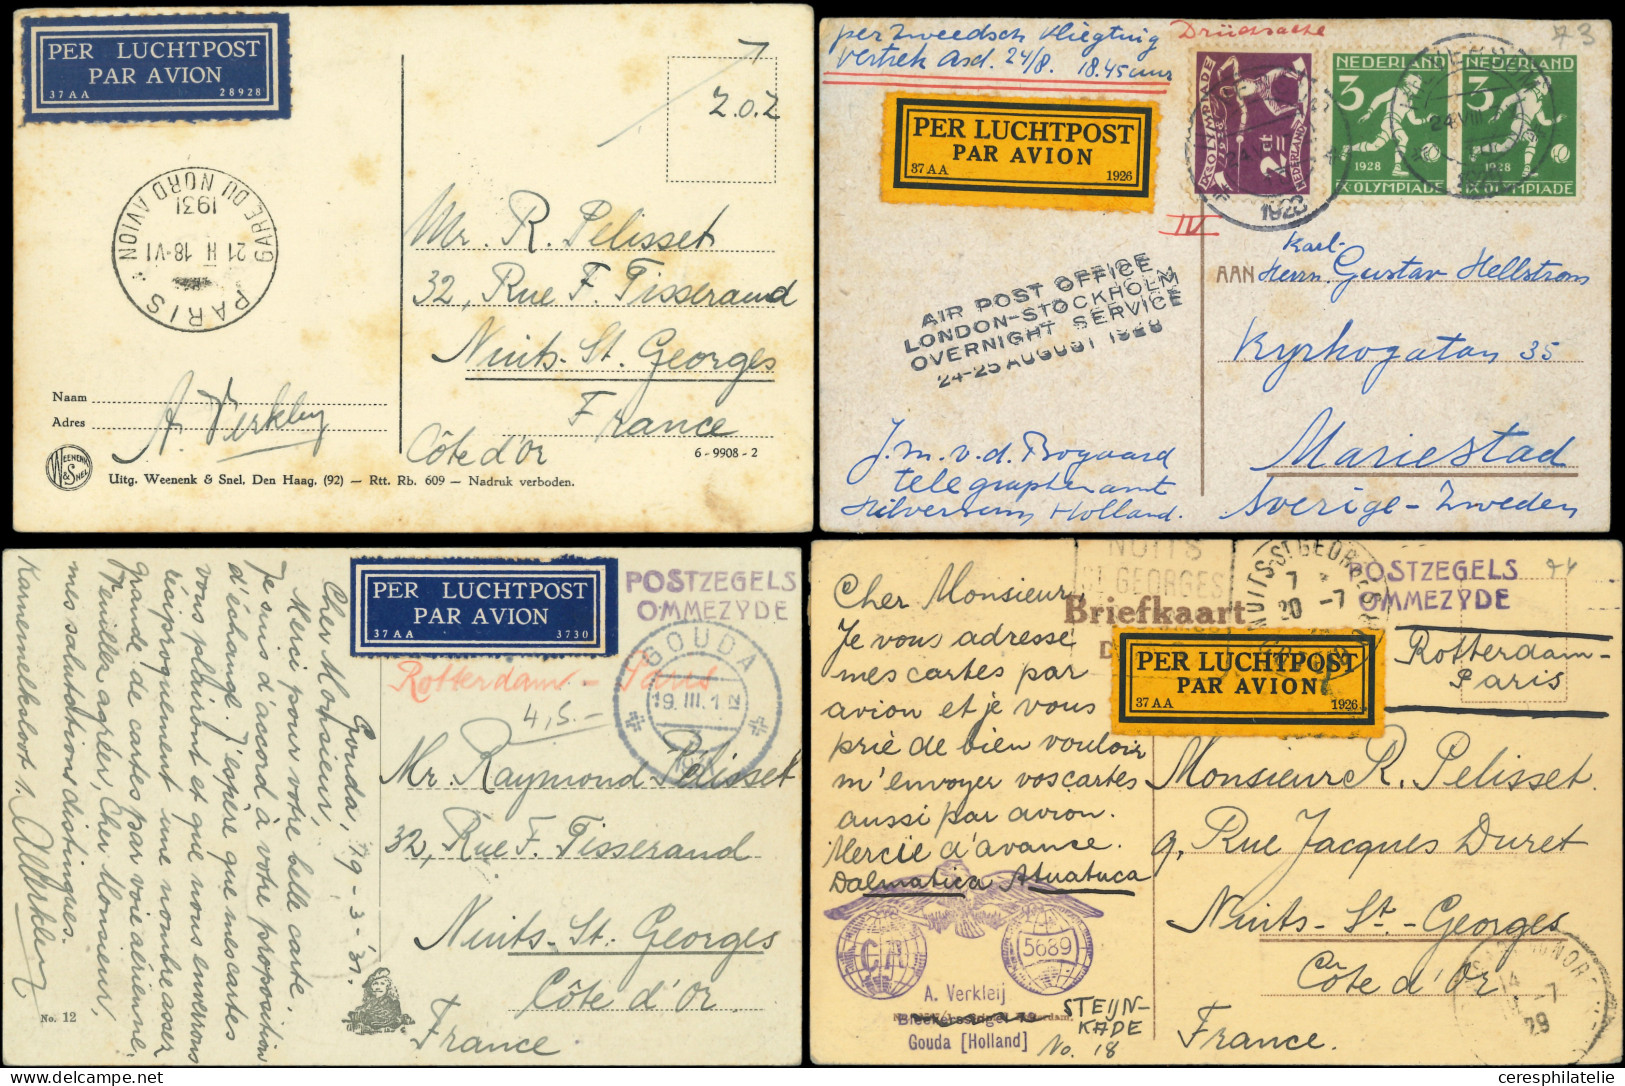 PER LUCHTPOST
PAR AVION
37 AA 28928
Z.O.Z
PARIS
GARE DU NORD AVION
21 II 18-VI
1931
Mr. R. Pelisset
32, Rue F. Tisserand
Nuits-St. Georges
France
Côte d'or
Naam
Adres
A. Verkley
WEENENK & SNEL
6-9908-2
Uitg. Weenenk & Snel, Den Haag, (92) — Rtt. Rb. 609 — Nadruk verboden.
per Zweedsch vliegtuig
vertrek Asd. 24/8. 18.45 uur
Drucksache
73
PER LUCHTPOST
PAR AVION
37 AA 1926
IX OLYMPIADE
1928
2 ct
NEDERLAND
NEDERLAND
3
1928
IX OLYMPIADE
NEDERLAND
3
1928
IX OLYMPIADE
24 VIII
IV
AIR POST OFFICE
LONDON-STOCKHOLM
OVERNIGHT SERVICE
24-25 AUGUST 1928
AAN
Karl-
Herrn. Gustav Hellstrom
Kyrkogatan 35
Mariestad
Sverige - Zweden
J. M. v. d. Bogaard
telegraphenamt
Hilversum Holland.
PER LUCHTPOST
PAR AVION
37 AA 3730
POSTZEGELS
OMMEZYDE
Rotterdam - Paris
4,5.-
GOUDA
19.III.1
Gouda, 19-3-'31.
Cher Monsieur,
Merci pour votre belle carte.
Je suis d'accord à votre proposition
d'échange. J'espère que mes cartes
vous plairont et que nous enverrons
réciproquement une nombre asser
grande de cartes par voie aérienne.
Veuiller agréer, Cher Monsieur,
mes salutations distingués.
Karnemelksloot 1.
AVerkley
Mr. Raymond Pelisset
32, Rue F. Tisserand
Nuits-St. Georges
Côte d'Or.
France
No. 12
NUITS
ST GEORGES
NUITS-ST GEORGES
7
20 -7
POSTZEGELS
OMMEZYDE
Briefkaart
PER LUCHTPOST
PAR AVION
37 AA 1926
Rotterdam-
Paris
Cher Monsieur,
Je vous adresse
mes cartes par
avion et je vous
prié de bien vouloir
m'envoyer vos cartes
aussi par avion.
Mercie d'avance.
Dalmatica Atuatuca
Monsieur R. Pelisset.
9, Rue Jacques Duret
Nuits-St-Georges
Côte d'Or
France.
5689
A. Verkleij
Gouda [Holland]
STEIJN-
KADE
No. 18
14 -7
29
ceresphilatelie